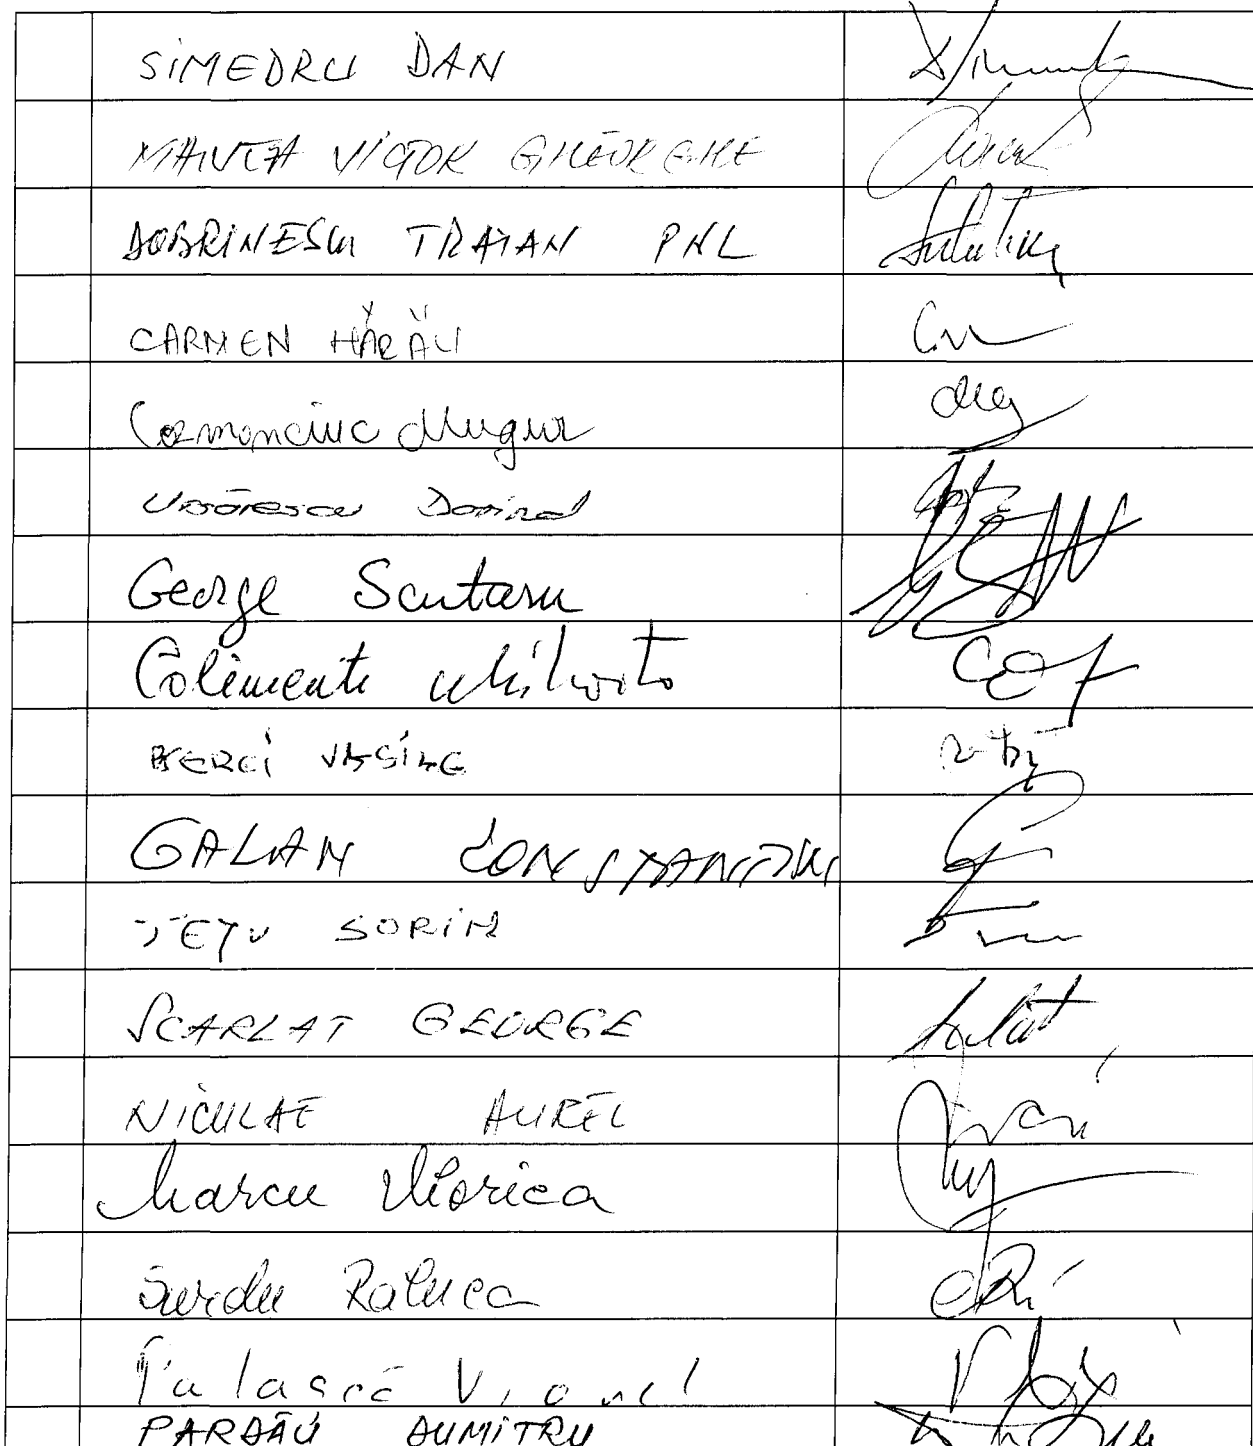 SIMEDRU DAN
MANTA VICTOR GHEORGHE
DOBRINESCU TRAIAN PNL
CARMEN HĂRĂU
Cozmanciuc Mugur
Dorinel
George Scutaru
Calimente Mihăiță
BERCI VASILE
GALAN CONSTANTIN
SORIN
SCARLAT GEORGE
NICULAE AUREL
Marcu Viorica
Surdu Raluca
Palașcă Viorel
PARDĂU DUMITRU